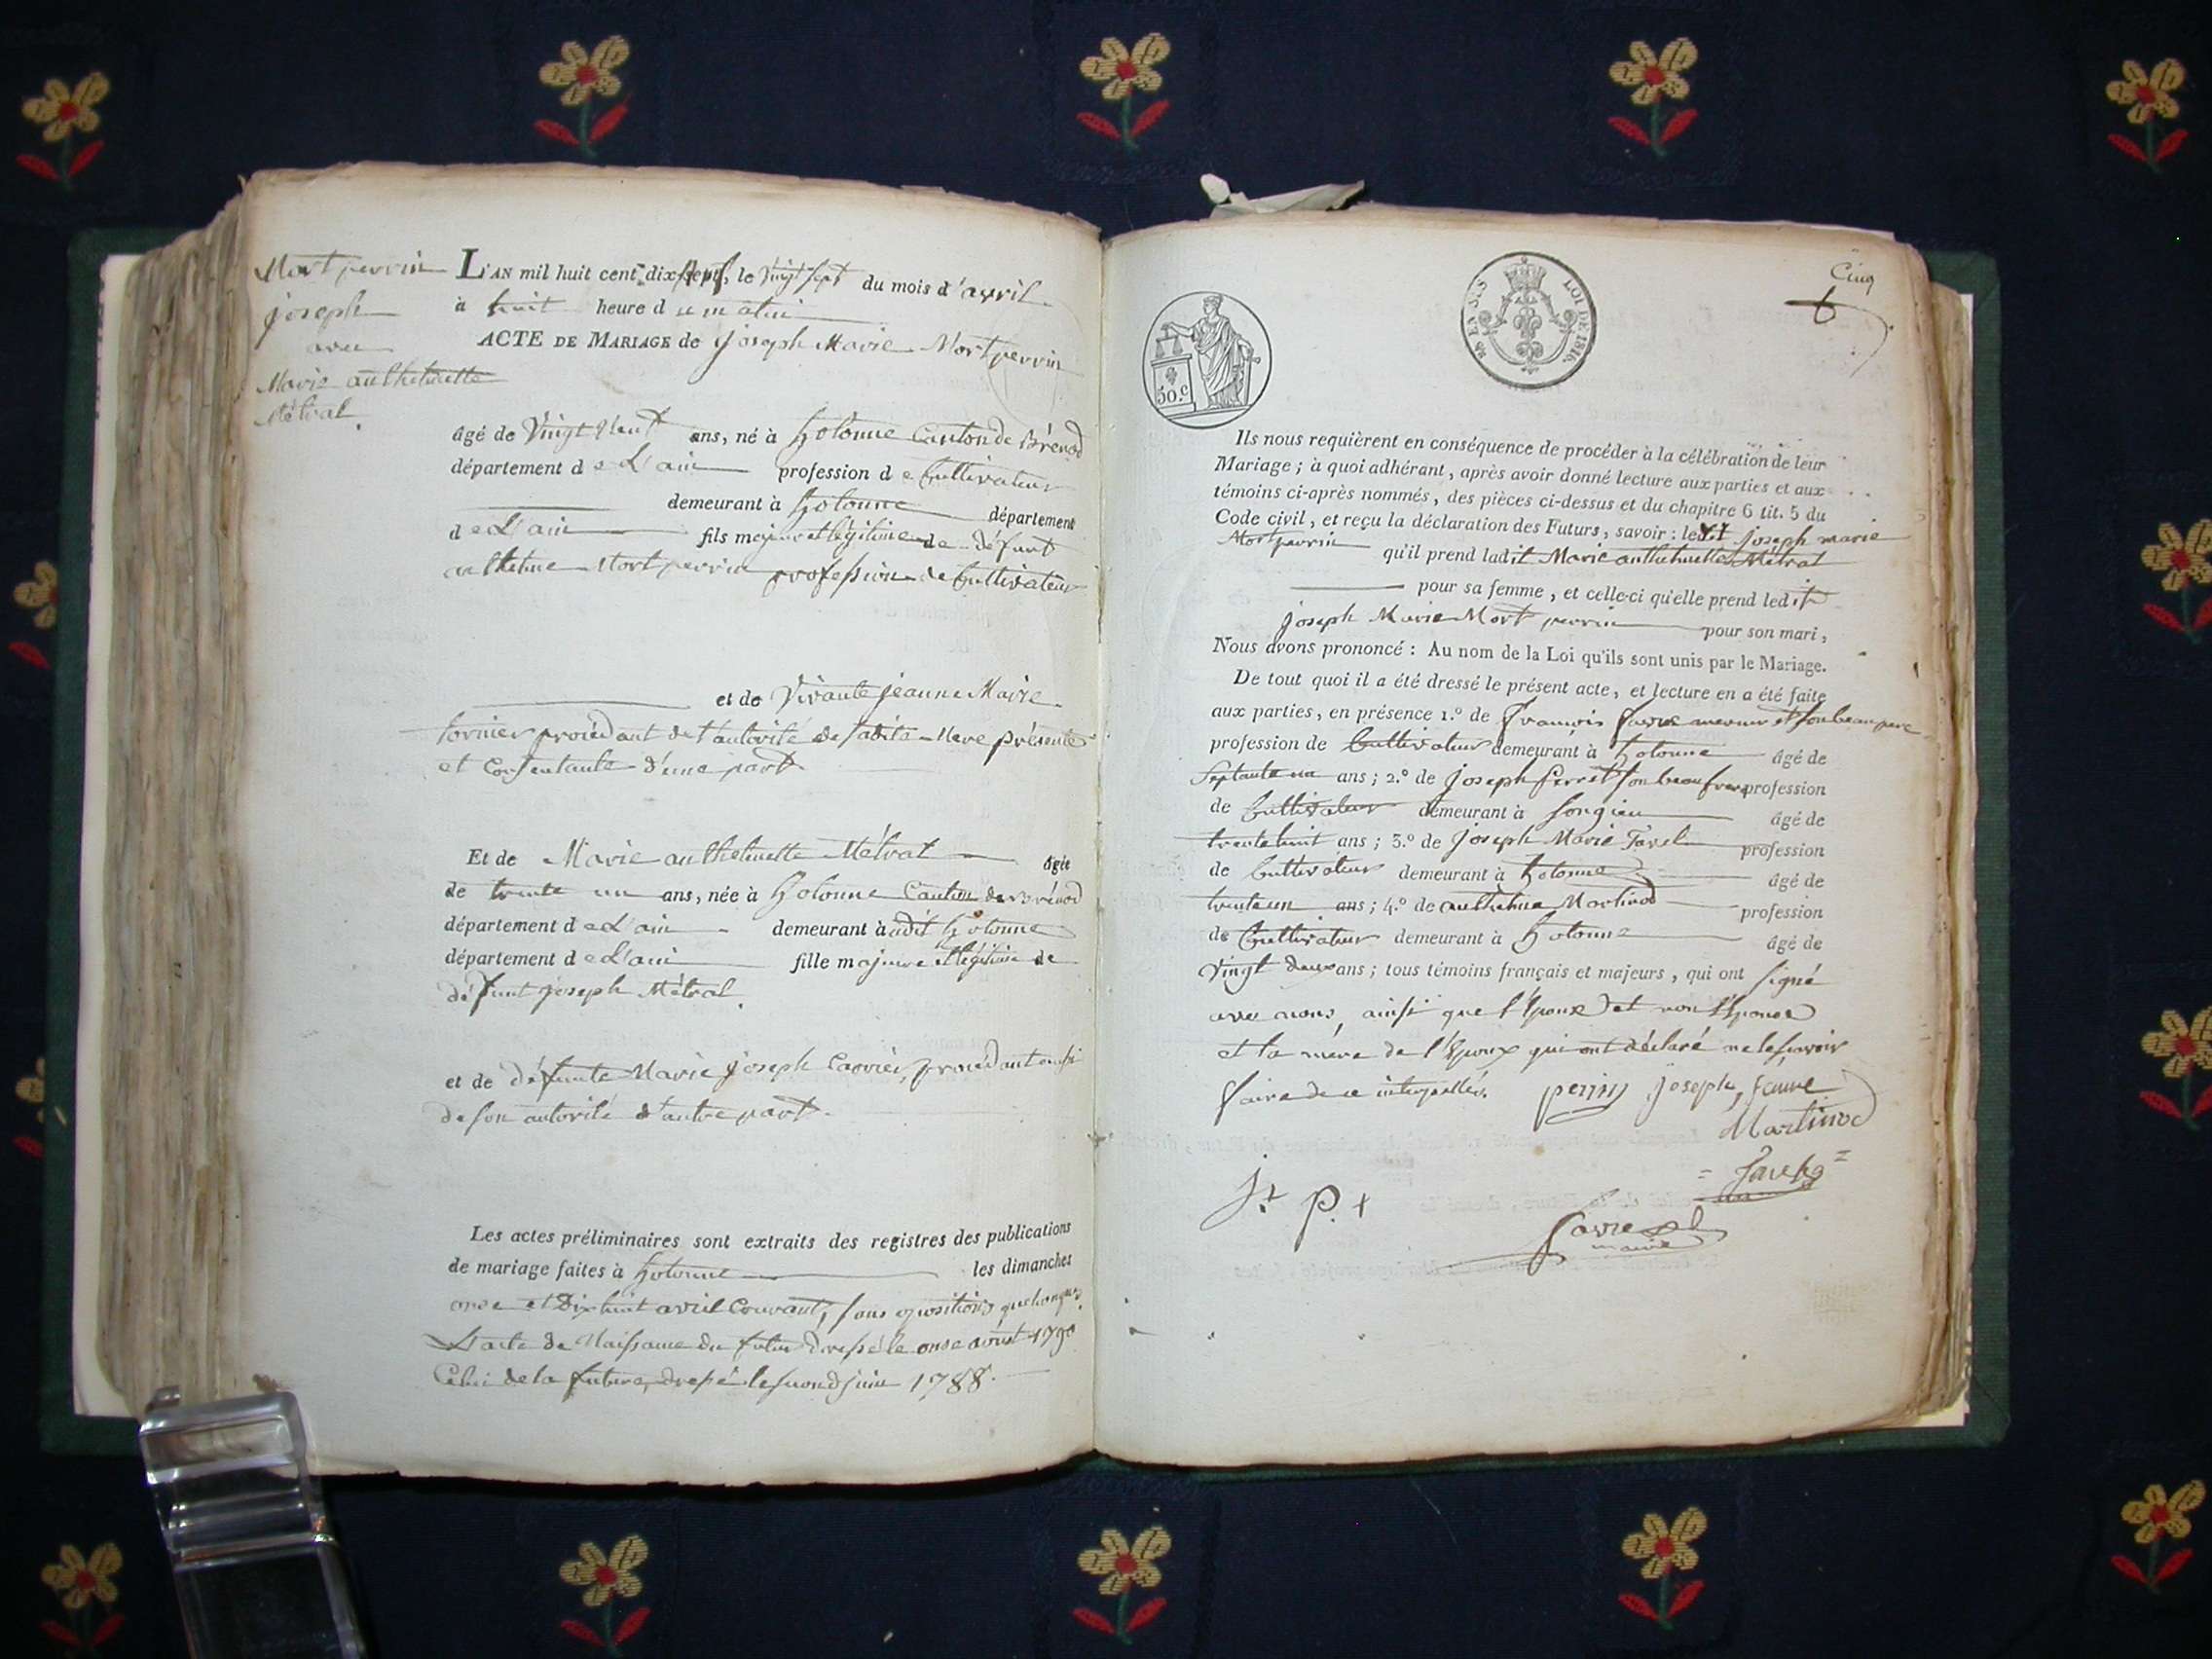 Mort perrin
joseph
avec
Marie anthelmette
Métral.
L'AN mil huit cent dix sept, le vingt sept du mois d'avril
à huit heure du matin
ACTE DE MARIAGE de joseph Marie Mort perrin
âgé de Vingt ans, né à hotonne Canton de Brénod
département de L'ain profession de Cultivateur
demeurant à hotonne département
de L'ain fils majeur et légitime de défunt
anthelme Mort perrin profession de Cultivateur
et de Vivante jeanne Marie
procédant de l'autorité de sadite Mere présente
et Consentante d'une part
Et de Marie anthelmette Métral âgée
de trente un ans, née à hotonne Canton de Brénod
département de L'ain demeurant à hotonne
département de L'ain fille majeure et légitime de
défunt joseph Métral.
et de défunte Marie joseph Carrier, procédant ainsi
de son autorité d'autre part.
Les actes préliminaires sont extraits des registres des publications
de mariage faites à hotonne les dimanches
onse et Dix huit avril Courant, sans opositions quelconques.
L'acte de Naissance du futur dressé le onse août 1790
Celui de la future, dressé le second juin 1788.
Cinq
6
50.c
EN SUS
LOI DE 1816.
Ils nous requièrent en conséquence de procéder à la célébration de leur
Mariage ; à quoi adhérant, après avoir donné lecture aux parties et aux
témoins ci-après nommés, des pièces ci-dessus et du chapitre 6 tit. 5 du
Code civil, et reçu la déclaration des Futurs, savoir : ledit joseph marie
Mort perrin qu'il prend ladit Marie anthelmette Métral
pour sa femme, et celle-ci qu'elle prend ledit
joseph Marie Mort perrin pour son mari,
Nous avons prononcé : Au nom de la Loi qu'ils sont unis par le Mariage.
De tout quoi il a été dressé le présent acte, et lecture en a été faite
aux parties, en présence 1.º de françois favre son beau pere
profession de Cultivateur demeurant à hotonne âgé de
Septante un ans ; 2.º de joseph perret son beau frere profession
de Cultivateur demeurant à Songieu âgé de
trente huit ans ; 3.º de joseph Marie Tavel profession
de Cultivateur demeurant à hotonne âgé de
trente un ans ; 4.º de anthelme Martinod profession
de Cultivateur demeurant à hotonne âgé de
Vingt deux ans ; tous témoins français et majeurs, qui ont signé
avec nous, ainsi que l'Epoux et non l'Epouse
et la mère de l'Epoux qui ont déclaré ne le savoir
faire de ce interpellés. perin joseph, favre
Martinod
j.t p. t
favre
maire